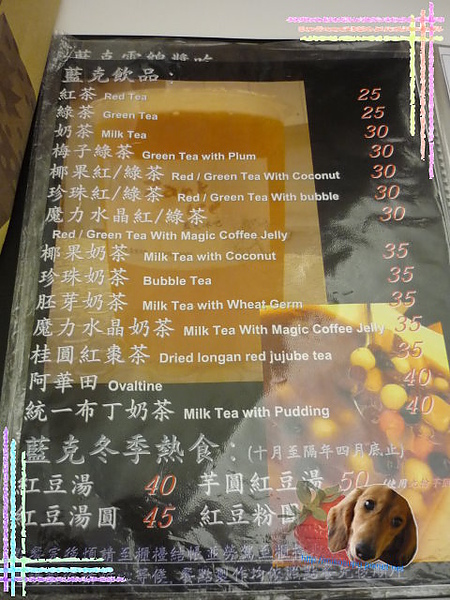 藍克飲品：
紅茶 Red Tea 25
綠茶 Green Tea 25
奶茶 Milk Tea 30
梅子綠茶 Green Tea with Plum 30
椰果紅/綠茶 Red / Green Tea With Coconut 30
珍珠紅/綠茶 Red / Green Tea With bubble 30
魔力水晶紅/綠茶 30
Red / Green Tea With Magic Coffee Jelly
椰果奶茶 Milk Tea with Coconut 35
珍珠奶茶 Bubble Tea 35
胚芽奶茶 Milk Tea with Wheat Germ 35
魔力水晶奶茶 Milk Tea With Magic Coffee Jelly 35
桂圓紅棗茶 Dried longan red jujube tea 35
阿華田 Ovaltine 40
統一布丁奶茶 Milk Tea with Pudding 40
藍克冬季熱食：(十月至隔年四月底止)
紅豆湯 40 芋圓紅豆湯 50
紅豆湯圓 45 紅豆粉圓